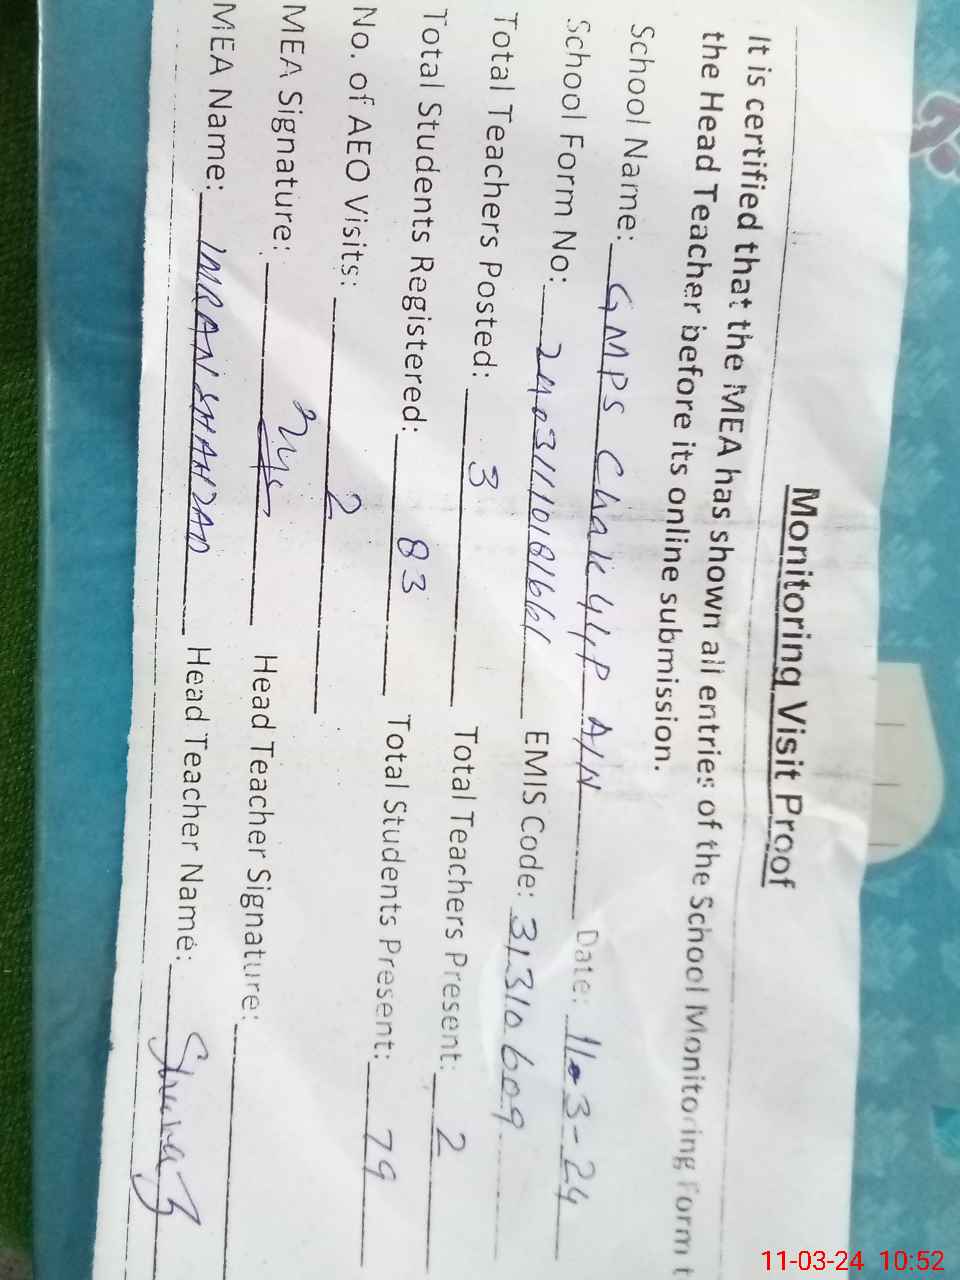 Monitoring Visit Proof
It is certified that the MEA has shown all entries of the School Monitoring Form t
the Head Teacher before its online submission.
School Name: GMPS Chak 44P A/N Date: 11-03-24
School Form No: EMIS Code: 31310609
Total Teachers Posted: 3 Total Teachers Present: 2
Total Students Registered: 83 Total Students Present: 79
No. of AEO Visits: 2
MEA Signature: Head Teacher Signature:
MEA Name: IMRAN SHAHZAD Head Teacher Name:
11-03-24 10:52